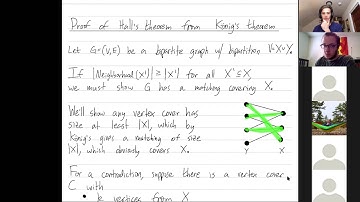 Proof of Hall's theorem from König's theorem
Let G=(V,E) be a bipartite graph w/ bipartition V=X∪Y.
If |Neighborhood(X')| ≥ |X'| for all X'⊆X,
we must show G has a matching covering X.
We'll show any vertex cover has
size at least |X|, which by
König's gives a matching of size
|X|, which obviously covers X.
Y X
For a contradiction, suppose there is a vertex cover
C with
• k vertices from X